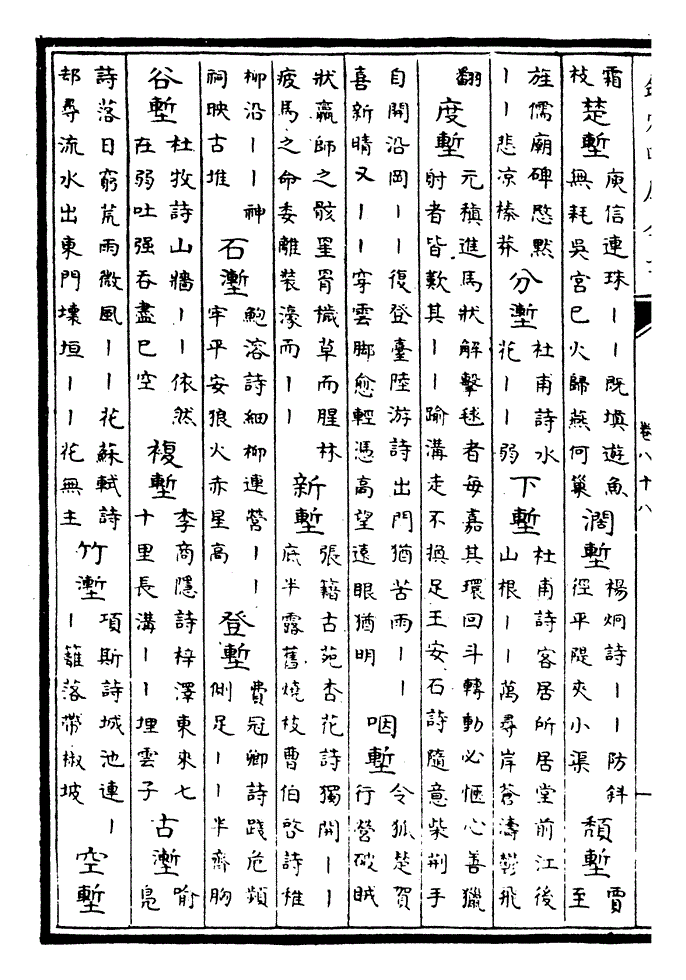 欽定四庫全書
卷八十八
霜
枝
楚塹
庾信連珠丨丨既填遊魚
無耗吳宮已火歸燕何巢
濶塹
楊炯詩丨丨防斜
徑平隄夾小渠
頽塹
賈
至
旌儒廟碑愍黙
丨丨悲凉榛莽
分塹
杜甫詩水
花丨丨弱
下塹
杜甫詩客居所居堂前江後
山根丨丨萬尋岸蒼濤鬱飛
翻
度塹
元稹進馬狀解擊毬者每嘉其環回斗轉動必愜心善獵
射者皆歎其丨丨踰溝走不換足王安石詩隨意柴荆手
自開沿岡丨丨復登臺陸游詩出門猶苦雨丨丨
喜新晴又丨丨穿雲脚愈輕憑高望遠眼猶明
咽塹
令狐楚賀
行營破賊
狀羸師之骸星骨穢草而腥林
疲馬之命委離裝濠而丨丨
新塹
張籍古苑杏花詩獨開丨丨
底半露舊燒枝曹伯啓詩椎
柳沿丨丨神
祠映古堆
石塹
鮑溶詩細柳連營丨丨
牢平安狼火赤星高
登塹
費冠卿詩踐危頻
側足丨丨半齊胸
谷塹
杜牧詩山牆丨丨依然
在弱吐强吞盡已空
複塹
李商隱詩梓澤東來七
十里長溝丨丨埋雲子
古塹
喻
凫
詩落日窮荒雨微風丨丨花蘇軾詩
却尋流水出東門壞垣丨丨花無主
竹塹
項斯詩城池連丨
丨籬落帶椒坡
空塹